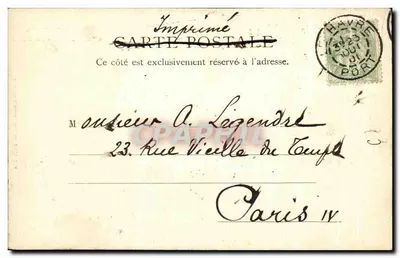 Imprimé
CARTE POSTALE
Ce côté est exclusivement réservé à l'adresse.
HAVRE
PORT
Monsieur A. Legendre
23. Rue Vieille du Temple
Paris IV